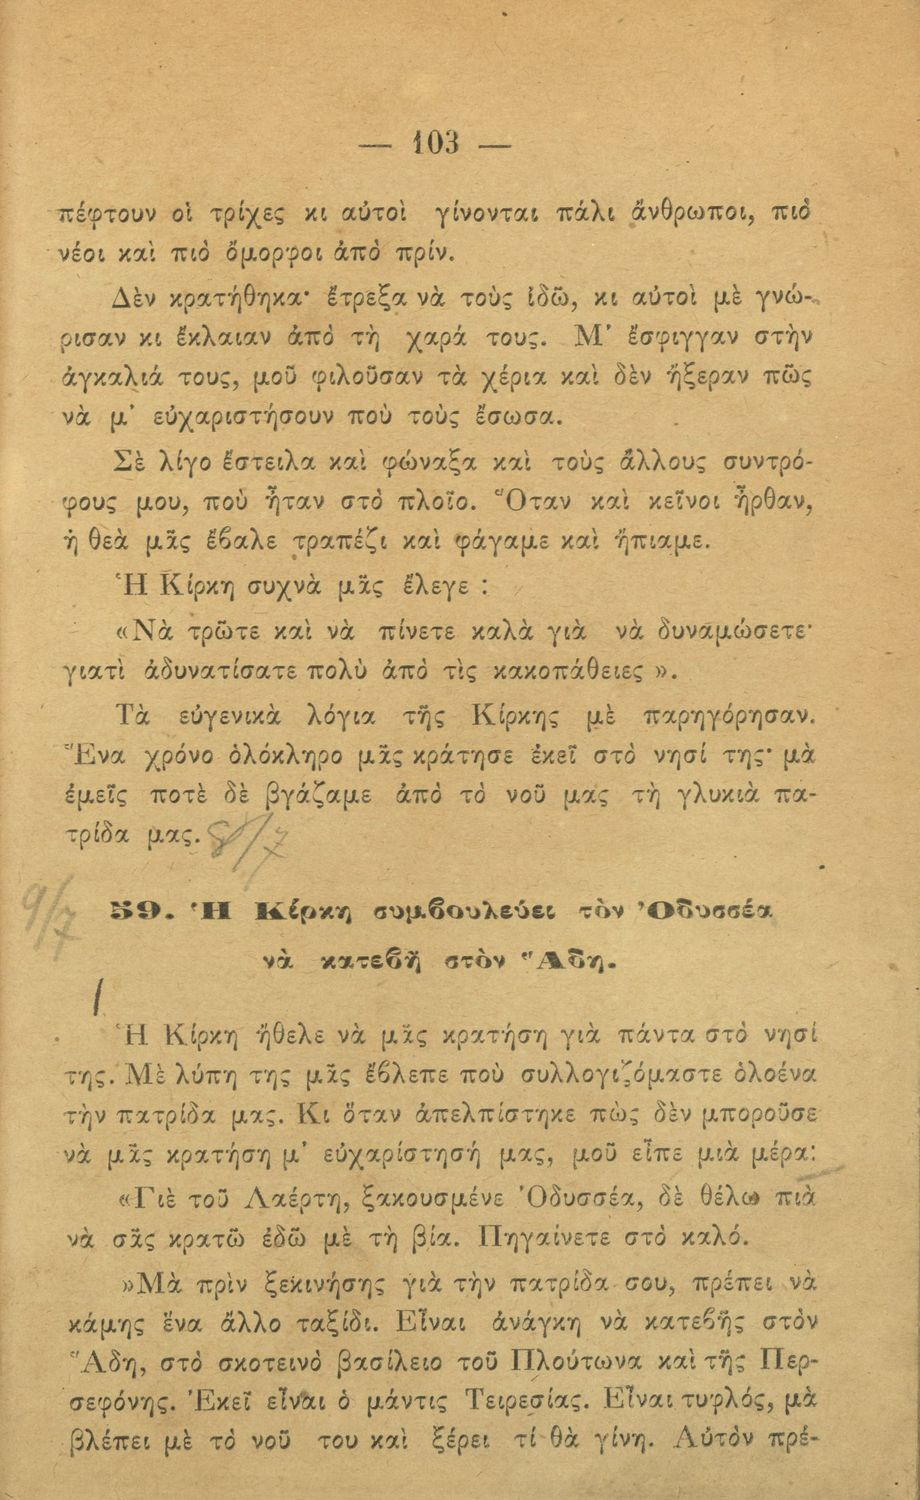 — 103 —
πέφτουν οἱ τρίχες κι αὐτοὶ γίνονται πάλι ἄνθρωποι, πιὸ
νέοι καὶ πιὸ ὄμορφοι ἀπὸ πρίν.
Δὲν κρατήθηκα· ἔτρεξα νὰ τοὺς ἰδῶ, κι αὐτοὶ μὲ γνώ-
ρισαν κι ἔκλαιαν ἀπὸ τὴ χαρά τους. Μ' ἔσφιγγαν στὴν
ἀγκαλιά τους, μοῦ φιλοῦσαν τὰ χέρια καὶ δὲν ἤξεραν πῶς
νὰ μ' εὐχαριστήσουν ποὺ τοὺς ἔσωσα.
Σὲ λίγο ἔστειλα καὶ φώναξα καὶ τοὺς ἄλλους συντρό-
φους μου, ποὺ ἦταν στὸ πλοῖο. Ὅταν καὶ κεῖνοι ἦρθαν,
ἡ θεὰ μᾶς ἔβαλε τραπέζι καὶ φάγαμε καὶ ἤπιαμε.
Ἡ Κίρκη συχνὰ μᾶς ἔλεγε :
«Νὰ τρῶτε καὶ νὰ πίνετε καλὰ γιὰ νὰ δυναμώσετε·
γιατὶ ἀδυνατίσατε πολὺ ἀπὸ τὶς κακοπάθειες ».
Τὰ εὐγενικὰ λόγια τῆς Κίρκης μὲ παρηγόρησαν.
Ἕνα χρόνο ὁλόκληρο μᾶς κράτησε ἐκεῖ στὸ νησί της· μὰ
ἐμεῖς ποτὲ δὲ βγάζαμε ἀπὸ τὸ νοῦ μας τὴ γλυκιὰ πα-
τρίδα μας. 8/7
9/7
59. Ἡ Κίρκη συμβουλεύει τὸν Ὀδυσσέα
νὰ κατεβῆ στὸν Ἅδη.
Ἡ Κίρκη ἤθελε νὰ μᾶς κρατήση γιὰ πάντα στὸ νησί
της. Μὲ λύπη της μᾶς ἔβλεπε ποὺ συλλογιζόμαστε ὁλοένα
τὴν πατρίδα μας. Κι ὅταν ἀπελπίστηκε πὼς δὲν μποροῦσε
νὰ μᾶς κρατήση μ' εὐχαρίστησή μας, μοῦ εἶπε μιὰ μέρα:
«Γιὲ τοῦ Λαέρτη, ξακουσμένε Ὀδυσσέα, δὲ θέλω πιὰ
νὰ σᾶς κρατῶ ἐδῶ μὲ τὴ βία. Πηγαίνετε στὸ καλό.
»Μὰ πρὶν ξεκινήσης γιὰ τὴν πατρίδα σου, πρέπει νὰ
κάμης ἕνα ἄλλο ταξίδι. Εἶναι ἀνάγκη νὰ κατεβῆς στὸν
Ἅδη, στὸ σκοτεινὸ βασίλειο τοῦ Πλούτωνα καὶ τῆς Περ-
σεφόνης. Ἐκεῖ εἶναι ὁ μάντις Τειρεσίας. Εἶναι τυφλός, μὰ
βλέπει μὲ τὸ νοῦ του καὶ ξέρει τί θὰ γίνη. Αὐτὸν πρέ-